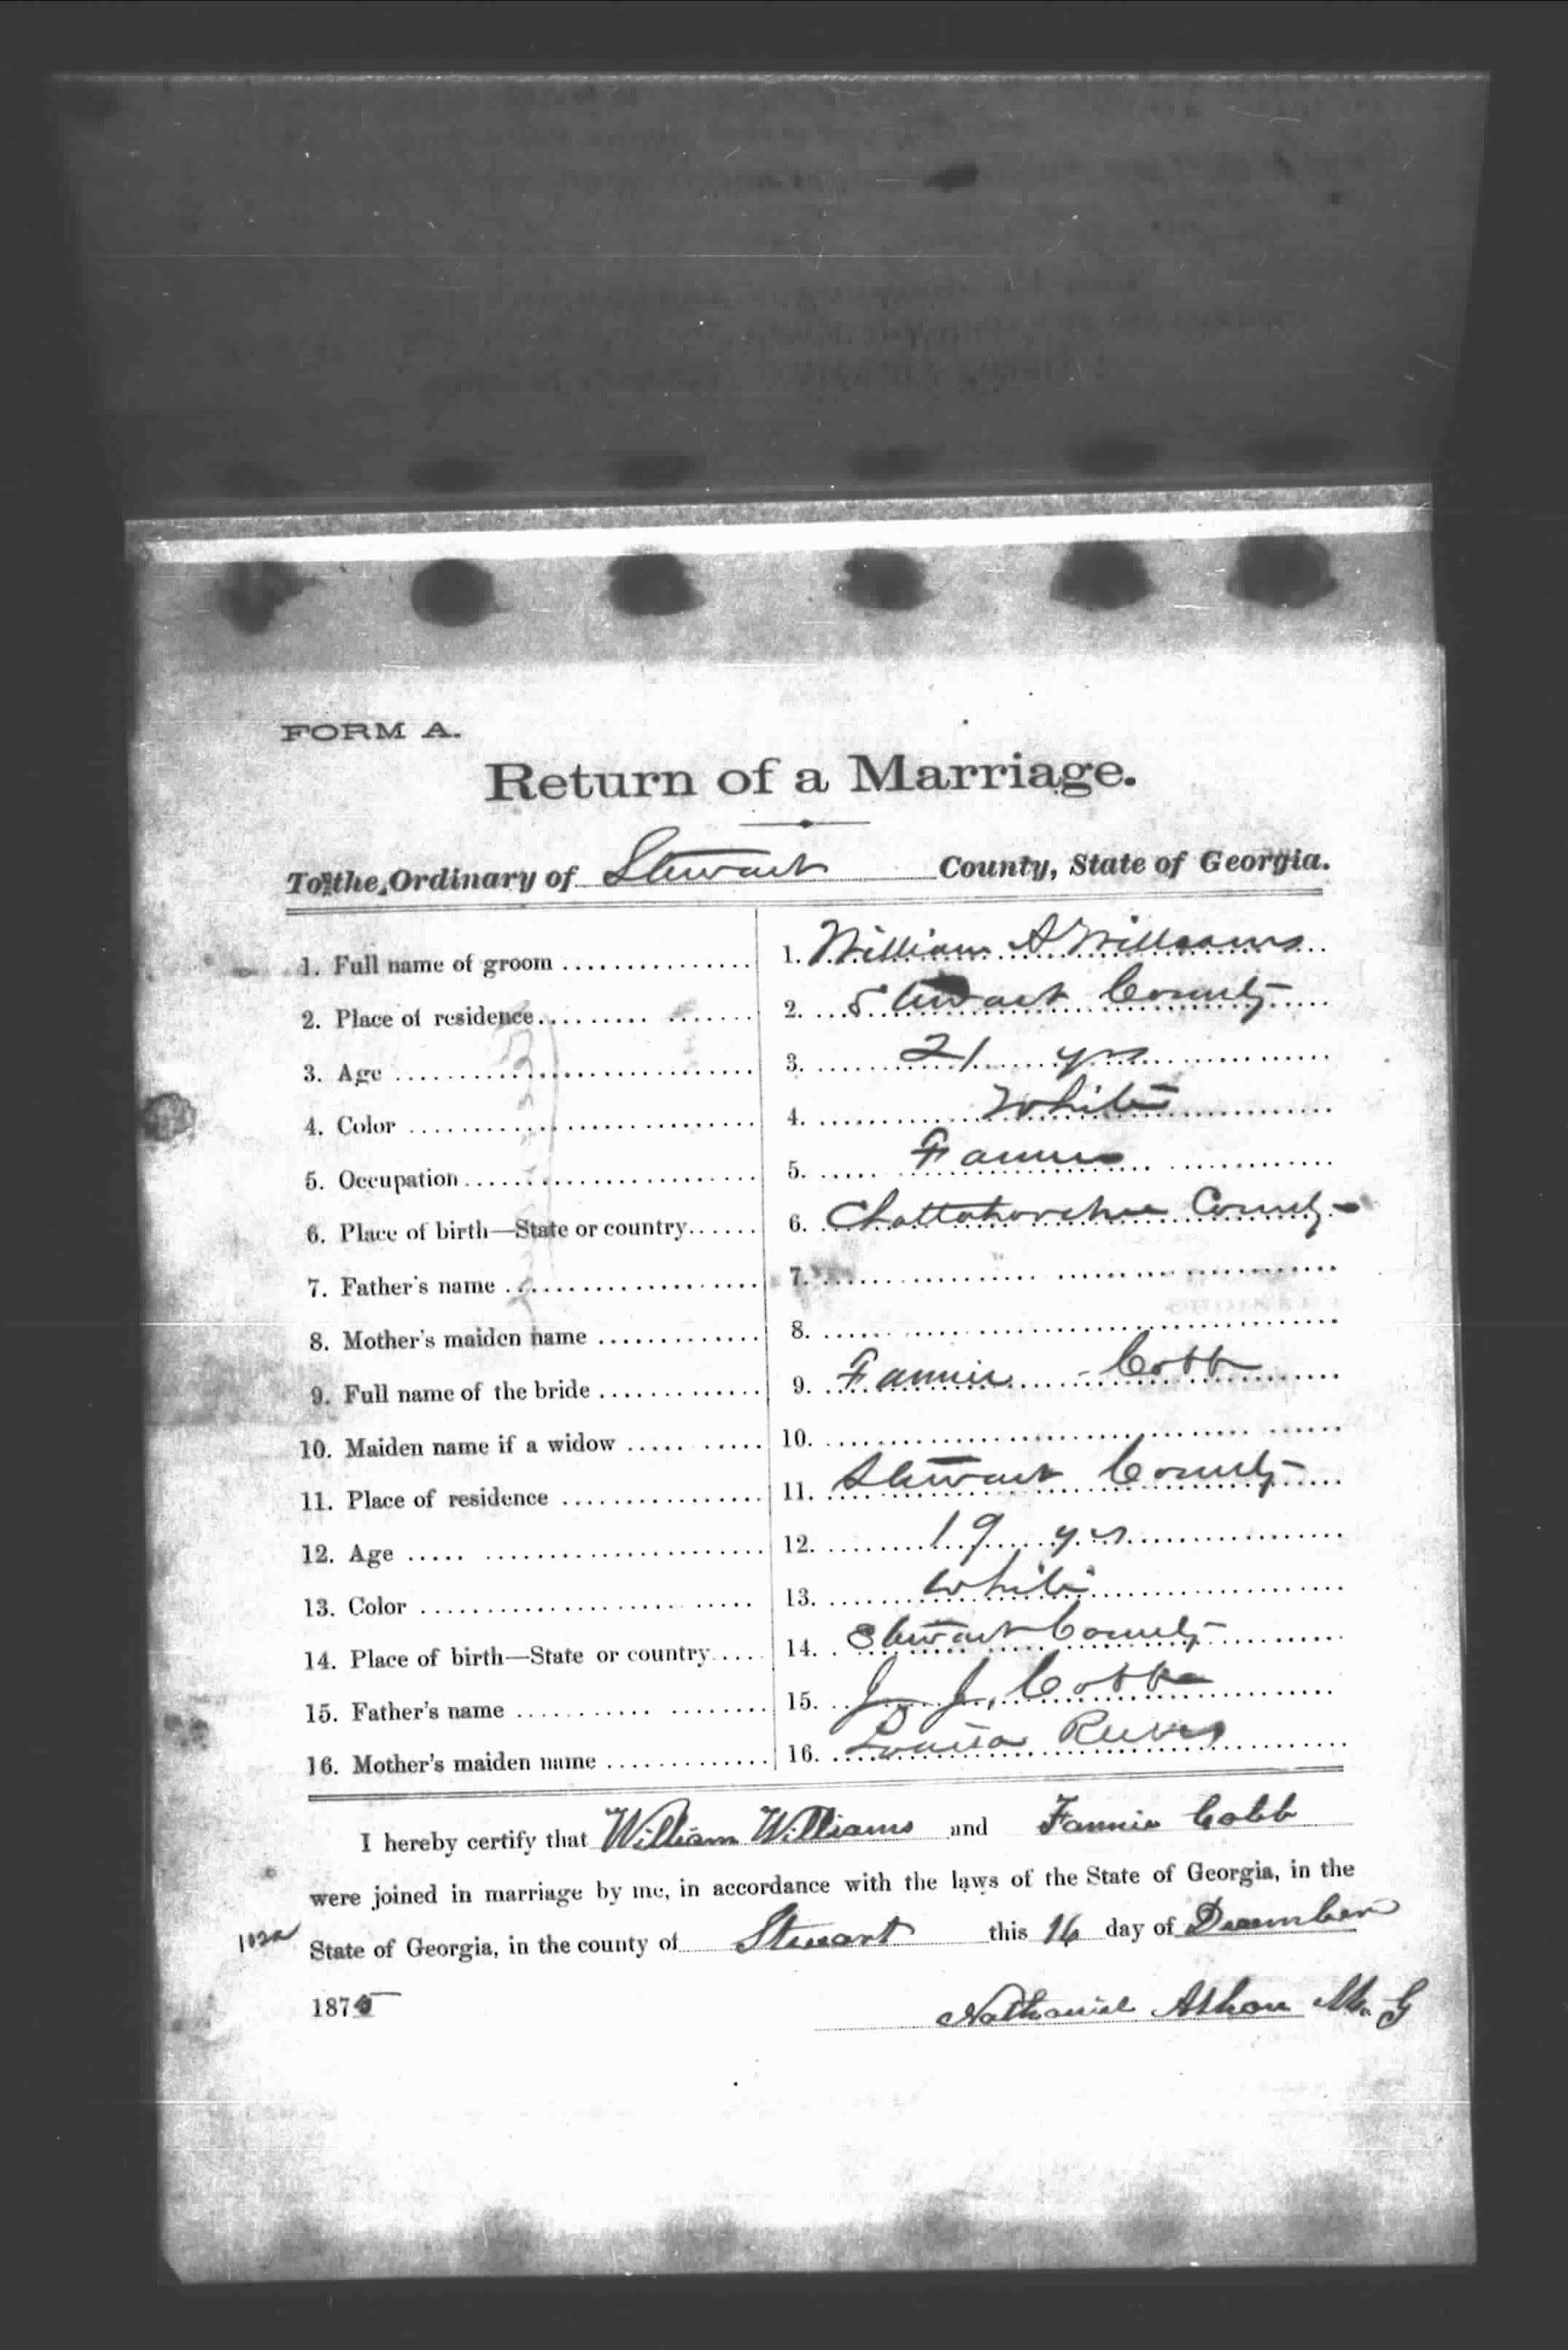 FORM A.
Return of a Marriage.
To the Ordinary of Stewart County, State of Georgia.
1. Full name of groom 1. William A Williams
2. Place of residence 2. Stewart County
3. Age 3. 21 yrs
4. Color 4. White
5. Occupation 5. Farmer
6. Place of birth—State or country 6. Chattahoochee County
7. Father's name 7.
8. Mother's maiden name 8.
9. Full name of the bride 9. Fannie Cobb
10. Maiden name if a widow 10.
11. Place of residence 11. Stewart County
12. Age 12. 19 yrs
13. Color 13. White
14. Place of birth—State or country 14. Stewart County
15. Father's name 15. J. J. Cobb
16. Mother's maiden name 16. Reeves
I hereby certify that William Williams and Fannie Cobb
were joined in marriage by me, in accordance with the laws of the State of Georgia, in the
State of Georgia, in the county of Stewart this 16 day of December
1875 Nathaniel M. G